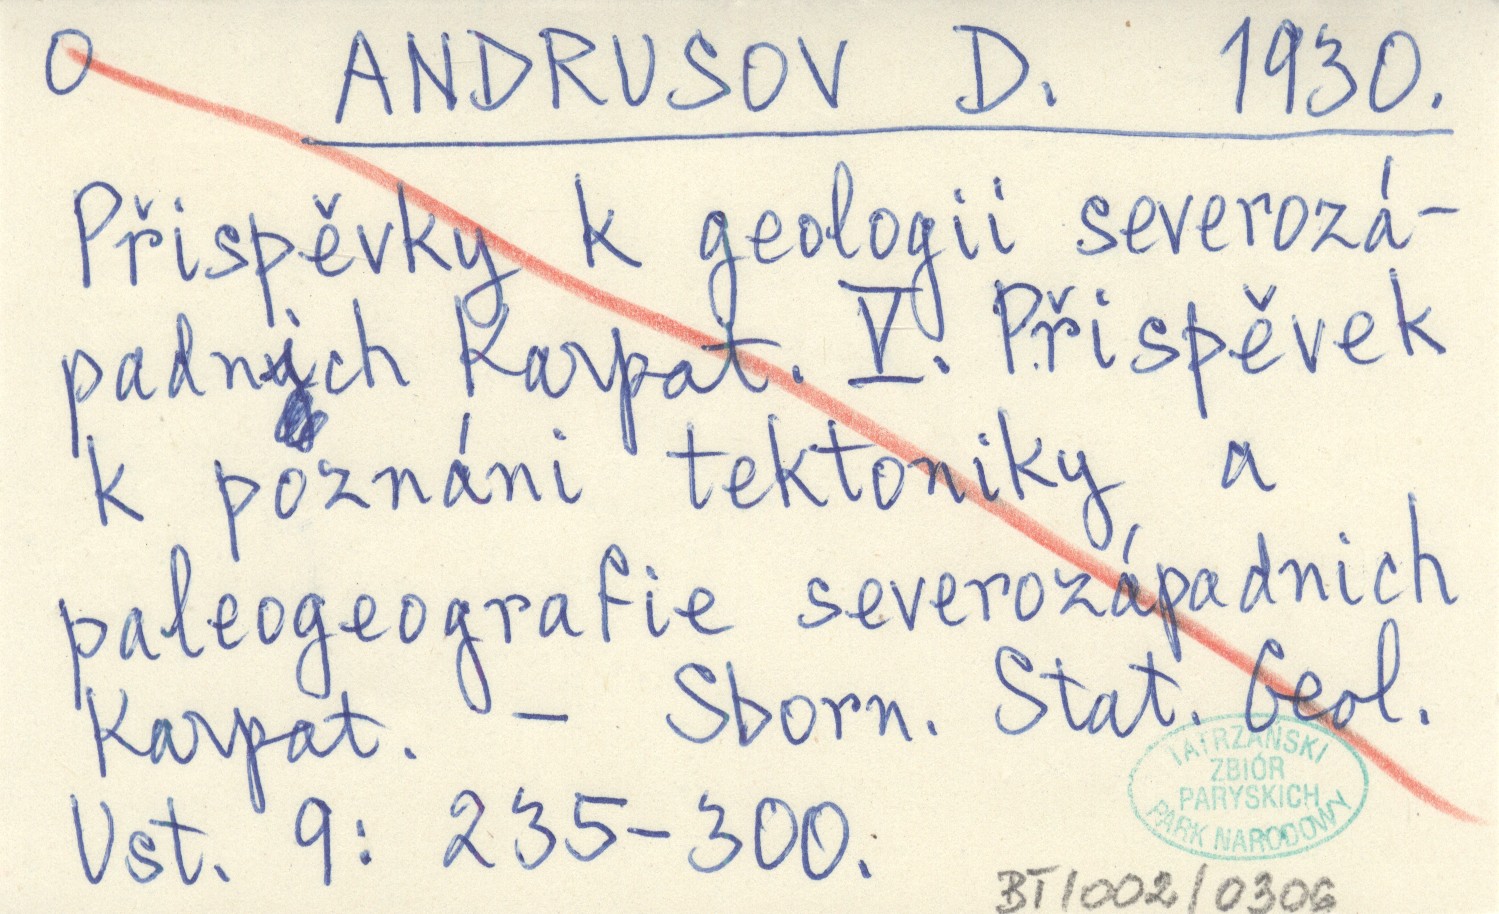 O ANDRUSOV D. 1930.
Přispěvky k geologii severozá-
padnich Karpat. V. Přispěvek
k poznáni tektoniky a
paleogeografie severozápadnich
Karpat. – Sborn. Stat. Geol.
Ust. 9: 235–300.
TATRZAŃSKI
ZBIÓR
PARYSKICH
PARK NARODOWY
BT/002/0306